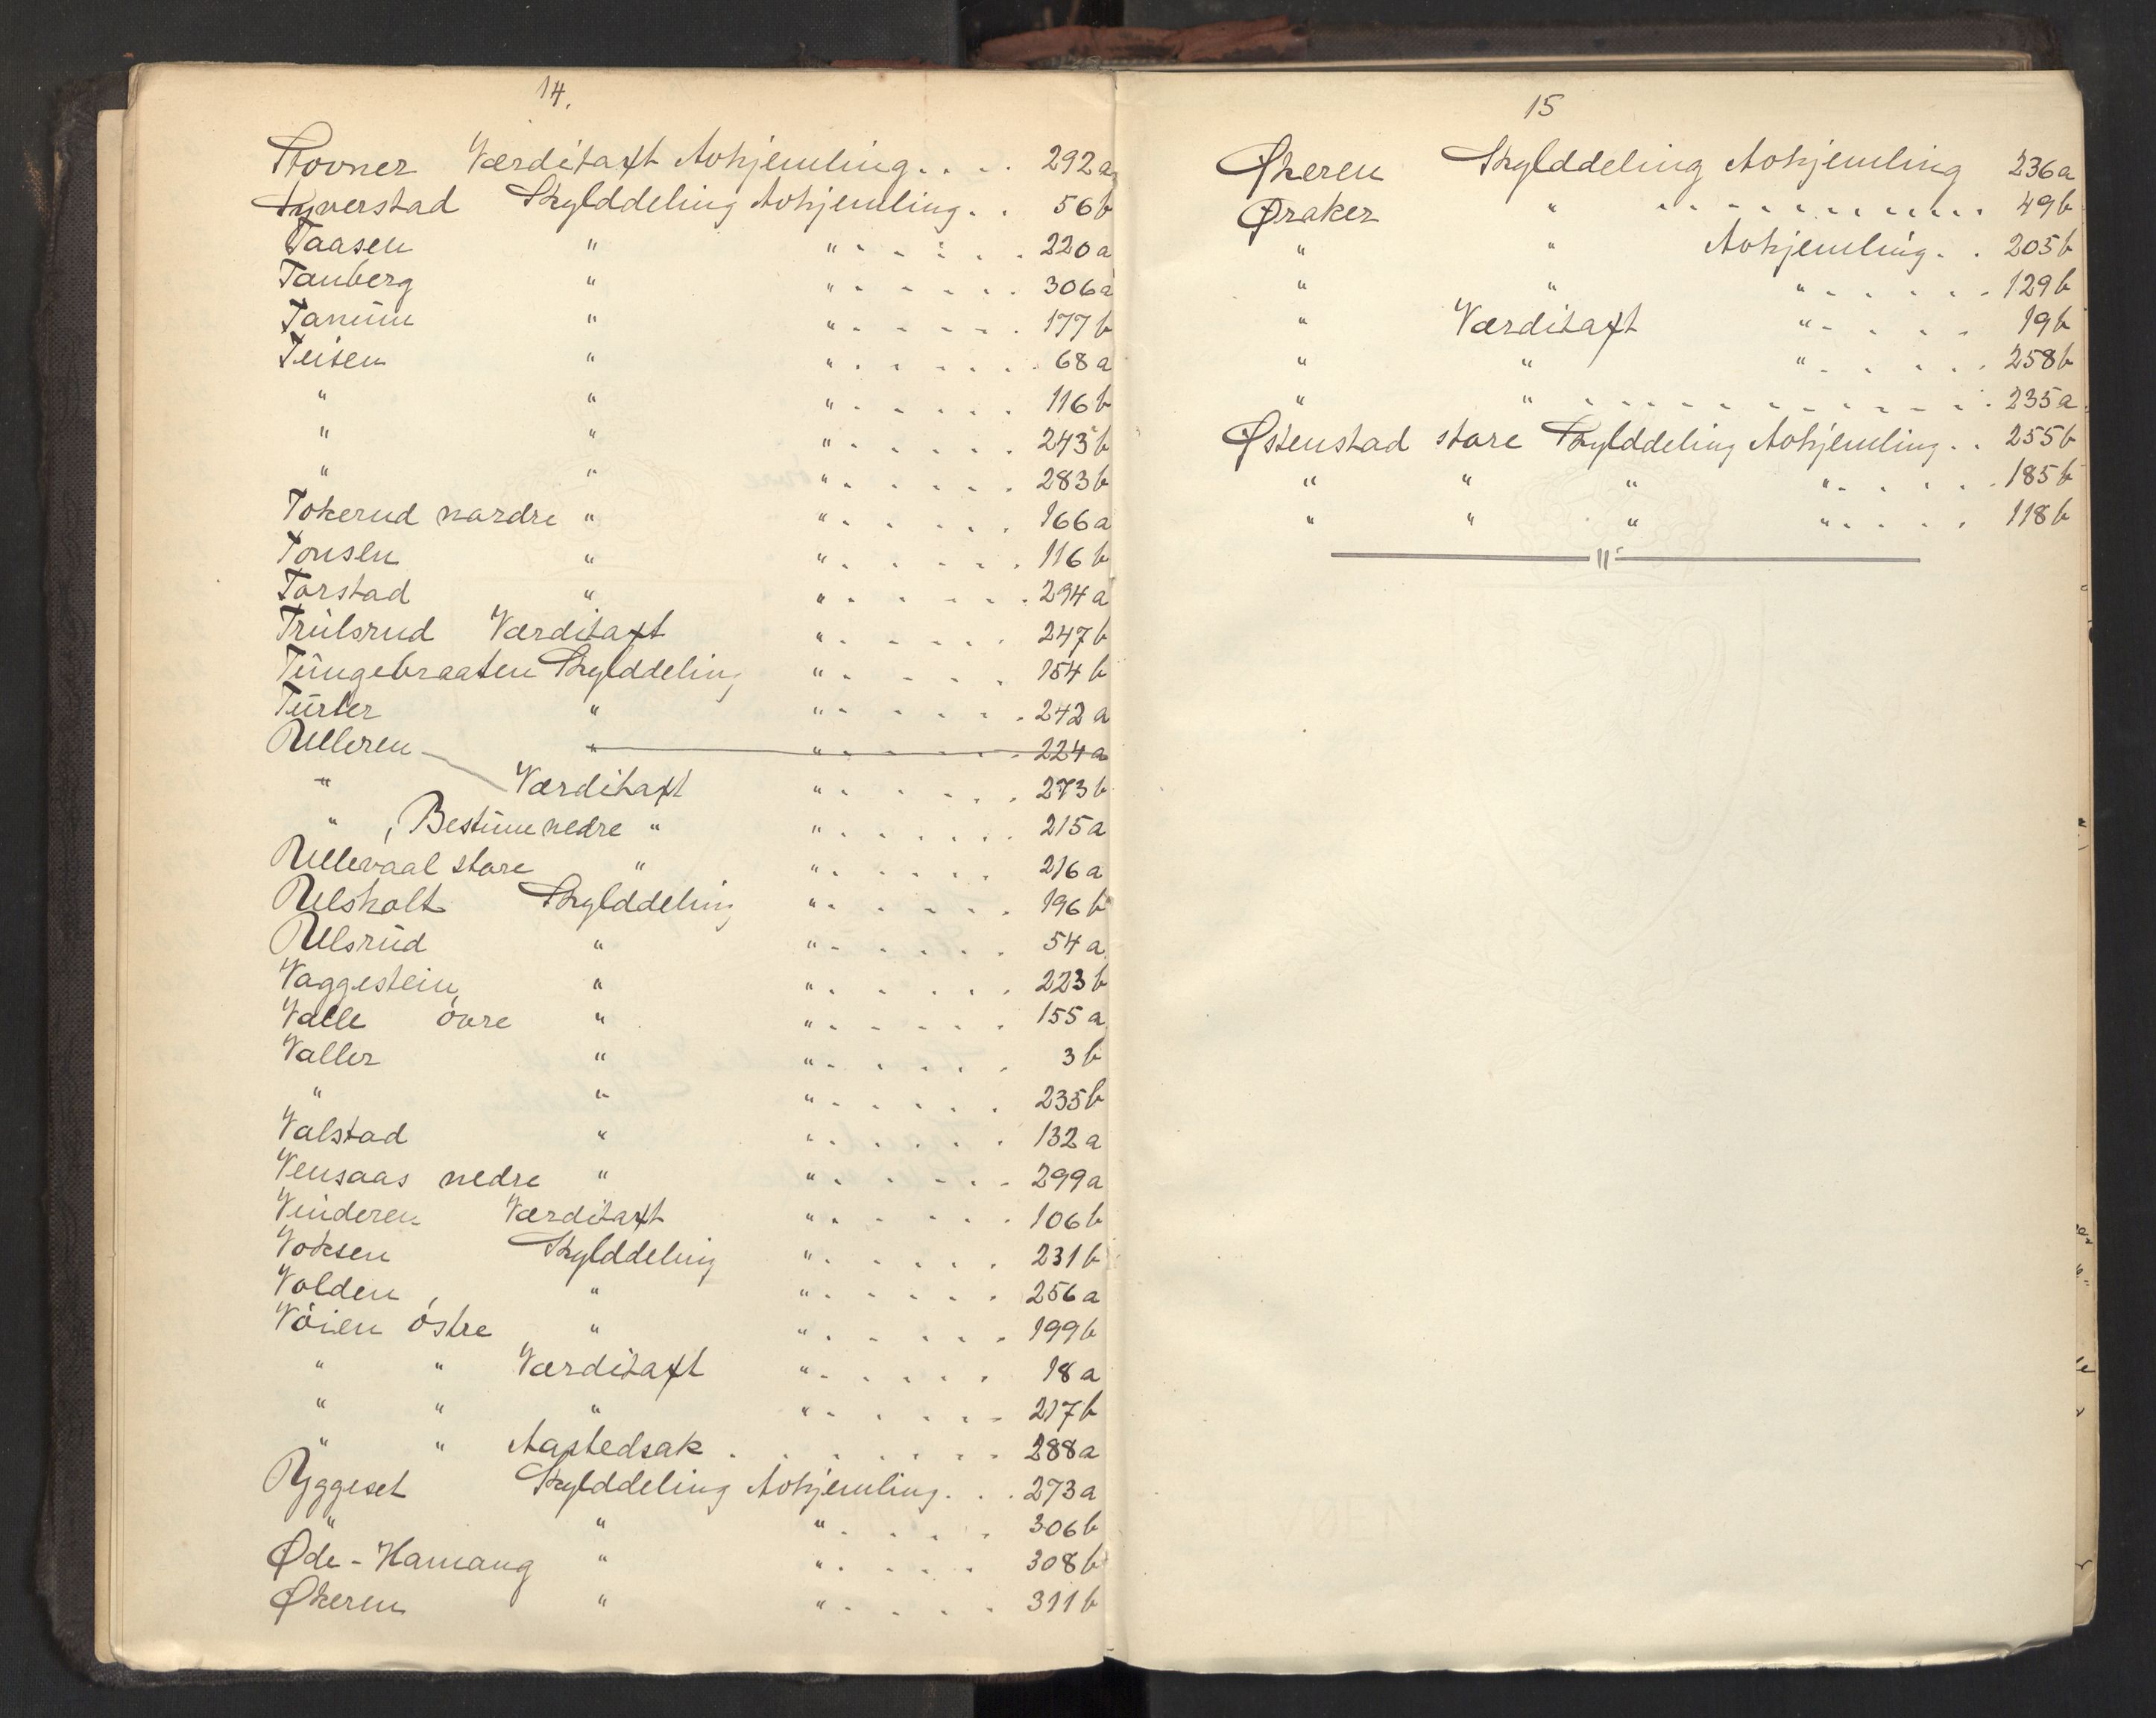 14.
Stovner Værditaxt Avhjemling.... 292a
Syverstad Skylddeling Avhjemling.. 56b
Taasen " " ..... 220a
Tanberg " " ..... 306a
Tanum " " ..... 177b
Teisen " " ..... 68a
" " " ..... 116b
" " " ..... 243b
" " " ..... 283b
Tokerud nordre " " ..... 166a
Tonsen " " ..... 116b
Torstad " " ..... 294a
Trulsrud Værditaxt " ..... 247b
Tungebraaten Skylddeling " ..... 154b
Turter " " ..... 242a
Ulleren " " ..... 224a
" Værditaxt " ..... 273b
" , Bestum nedre " " ..... 215a
Ullevaal store " " ..... 216a
Ulsholt Skylddeling " ..... 196b
Ulsrud " " ..... 54a
Vaggestein " " ..... 223b
Valle övre " " ..... 155a
Valler " " ..... 3b
" " " ..... 235b
Valstad " " ..... 132a
Vensaas nedre " " ..... 299a
Vinderen Værditaxt " ..... 106b
Voksen Skylddeling " ..... 231b
Volden " " ..... 256a
Vöien östre " " ..... 199b
" " Værditaxt " ..... 18a
" " " " ..... 217b
" " Aastedsak ....... 288a
Yggeset Skylddeling Avhjemling... 273a
" " " .... 306b
Øde-Hamang " " .... 308b
Økeren " " .... 311b
15
Økeren Skylddeling Avhjemling 236a
Øraker " ............ 49b
" " Avhjemling.. 205b
" " " ..... 129b
" Værditaxt " .... 19b
" " " .... 258b
" " ............ 235a
Østenstad store Skylddeling Avhjemling.. 255b
" " " " .... 185b
" " " " .... 118b